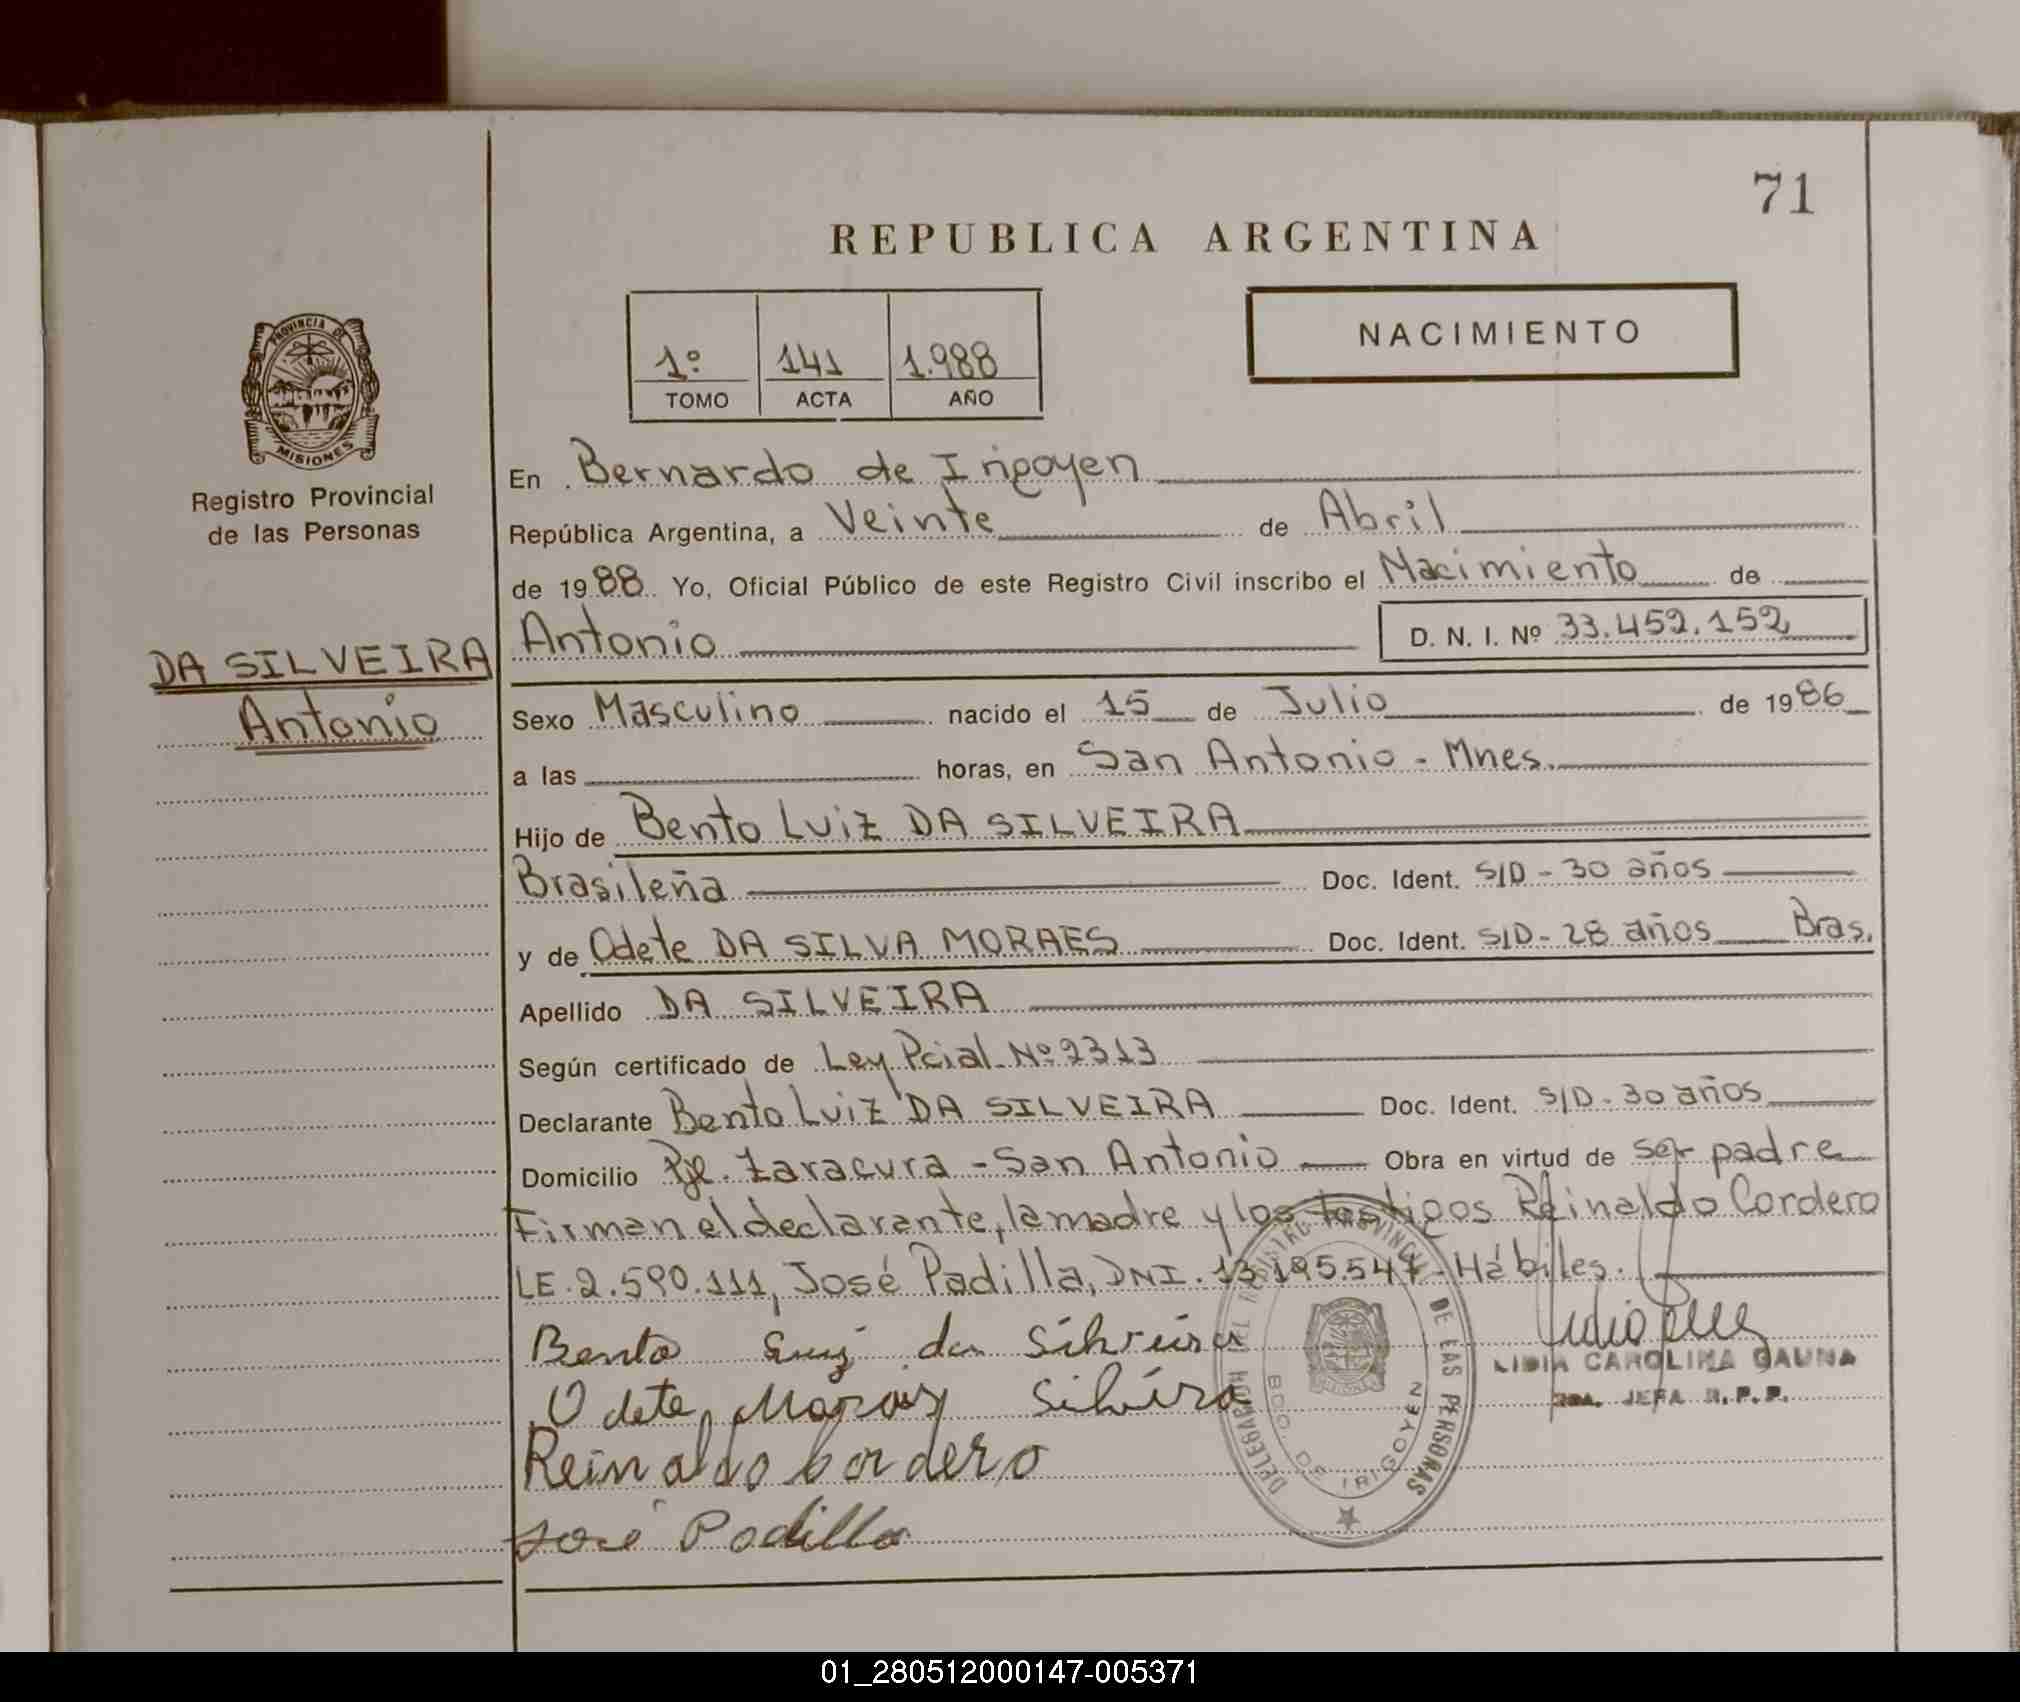 71
REPUBLICA ARGENTINA
1º 141 1.988
TOMO ACTA AÑO
NACIMIENTO
PROVINCIA DE MISIONES
Registro Provincial
de las Personas
DA SILVEIRA
Antonio
En Bernardo de Irigoyen
República Argentina, a Veinte de Abril
de 1988 Yo, Oficial Público de este Registro Civil inscribo el Nacimiento de
Antonio D. N. I. Nº 33.452.152
Sexo Masculino nacido el 15 de Julio de 1986
a las horas, en San Antonio - Mnes.
Hijo de Bento Luiz DA SILVEIRA
Brasileña Doc. Ident. S/D - 30 años
y de Odete DA SILVA MORAES Doc. Ident. S/D - 28 años Bras.
Apellido DA SILVEIRA
Según certificado de Ley Pcial. Nº 2313
Declarante Bento Luiz DA SILVEIRA Doc. Ident. S/D - 30 años
Domicilio Pje. Zaracura - San Antonio Obra en virtud de ser padre
Firman el declarante, la madre y los testigos Reinaldo Cordero
LE. 2.590.111, José Padilla, DNI. 13.195.547 - Hábiles.
Bento Luiz da Silveira
Odete Moraes Silveira
Reinaldo Cordero
José Padilla
DELEGACION DEL REGISTRO PROVINCIAL DE LAS PERSONAS
BDO. DE IRIGOYEN
LIDIA CAROLINA GAUNA
JEFA R.P.P.
01_280512000147-005371